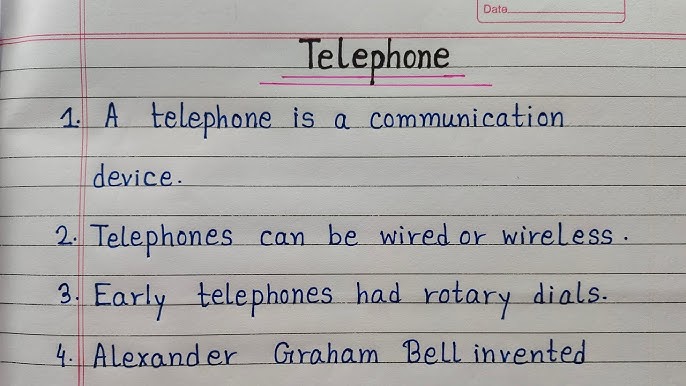 Date
Telephone
1. A telephone is a communication
device.
2. Telephones can be wired or wireless.
3. Early telephones had rotary dials.
4. Alexander Graham Bell invented